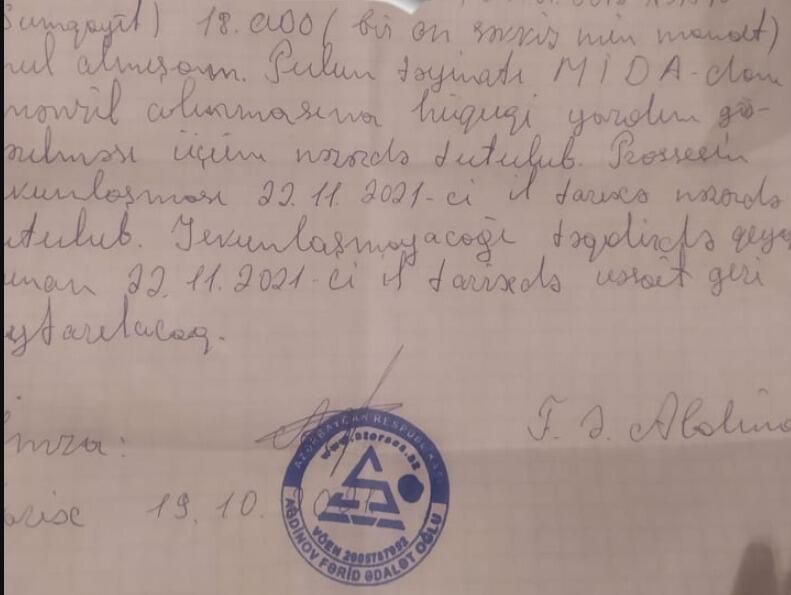 Sumqayıt) 18.000 ( bir on səkkiz min manat)
pul almışam. Pulun təyinatı MİDA-dan
mənzil alınmasına hüquqi yardım gö-
rülməsi üçün nəzərdə tutulub. Prossesin
yekunlaşması 22.11.2021-ci il tarixə nəzərdə
tutulub. Yekunlaşmayacağı təqdirdə qeyd
olunan 22.11.2021-ci il tarixdə vəsait geri
qaytarılacaq.
İmza: F. Ə. Abdino
Tarix 19.10.2021
AZƏRBAYCAN RESPUBLİKASI
VÖEN
AĞDİNOV FƏRİD ƏDALƏT OĞLU